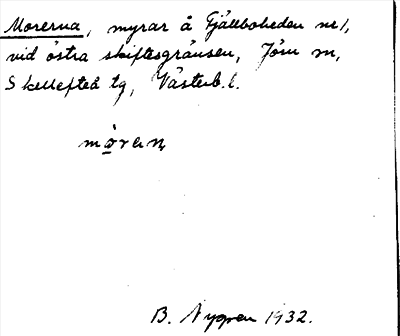 Morerna, myrar å Fjällboheden nr 1,
vid östra skiftesgränsen, Jörn sn,
Skellefteå tg, Västerb. l.
mo̱rɛn
B. Nygren 1932.